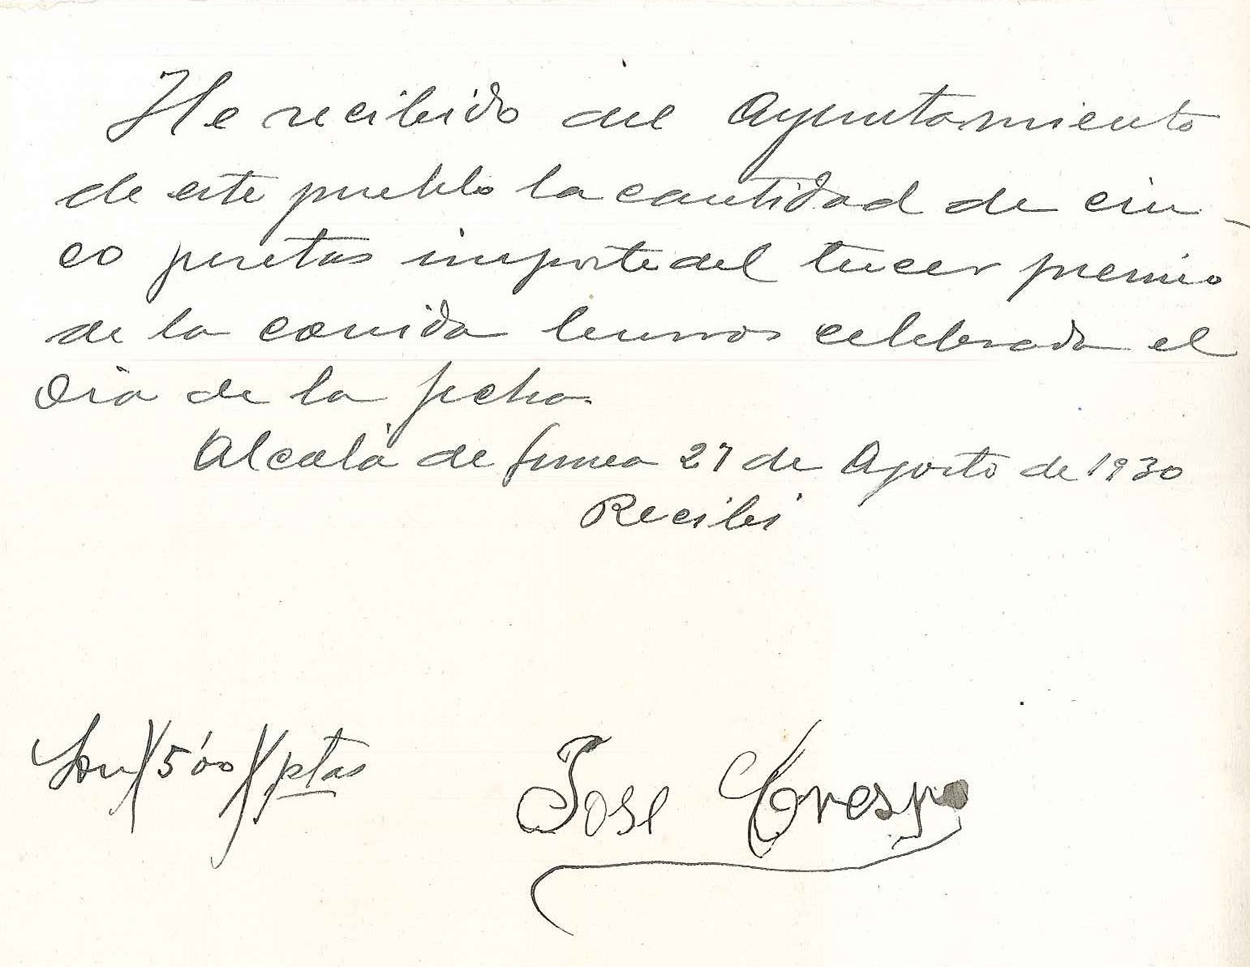 He recibido del Ayuntamiento
de este pueblo la cantidad de cin-
co pesetas importe del tercer premio
de la corrida burros celebrada el
dia de la fecha.
Alcalá de Gurrea 27 de Agosto de 1930
Recibi
Son//5'00//ptas
Jose Crespo